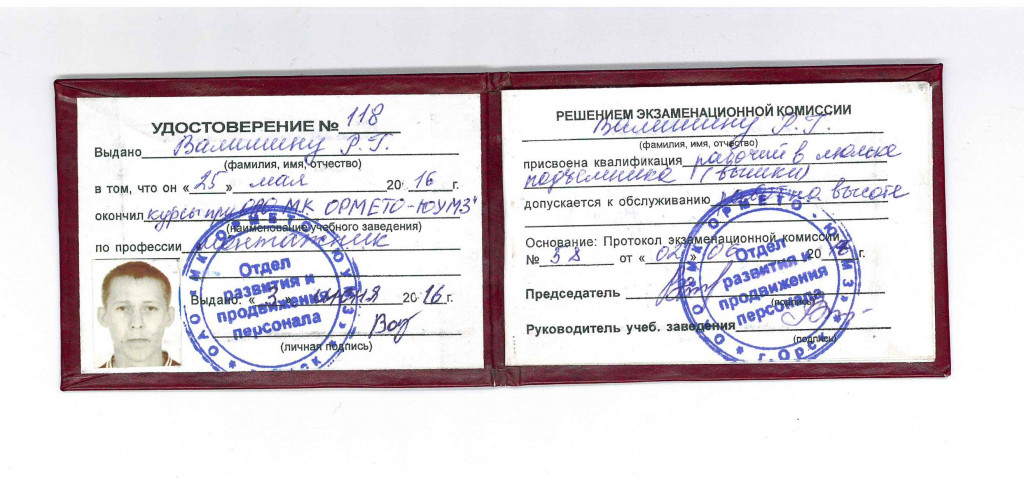 УДОСТОВЕРЕНИЕ № 118
Выдано Валишину Р.Г.
(фамилия, имя, отчество)
в том, что он « 25 » мая 20 16 г.
окончил курсы при ОАО "МК ОРМЕТО-ЮУМЗ"
(наименование учебного заведения)
по профессии Монтажник
Выдано: « 3 » июня 20 16 г.
(личная подпись)
ОАО "МК ОРМЕТО-ЮУМЗ"
Отдел
развития и
продвижения
персонала
РЕШЕНИЕМ ЭКЗАМЕНАЦИОННОЙ КОМИССИИ
Валишину Р.Г.
(фамилия, имя, отчество)
присвоена квалификация рабочий в люльке
подъемника (вышки)
допускается к обслуживанию работ на высоте
Основание: Протокол экзаменационной комиссии
№ 38 от « 02 » 06 20 16 г.
Председатель
(подпись)
Руководитель учеб. заведения
(подпись)
ОАО "МК ОРМЕТО-ЮУМЗ" * г.Орск *
Отдел
развития и
продвижения
персонала